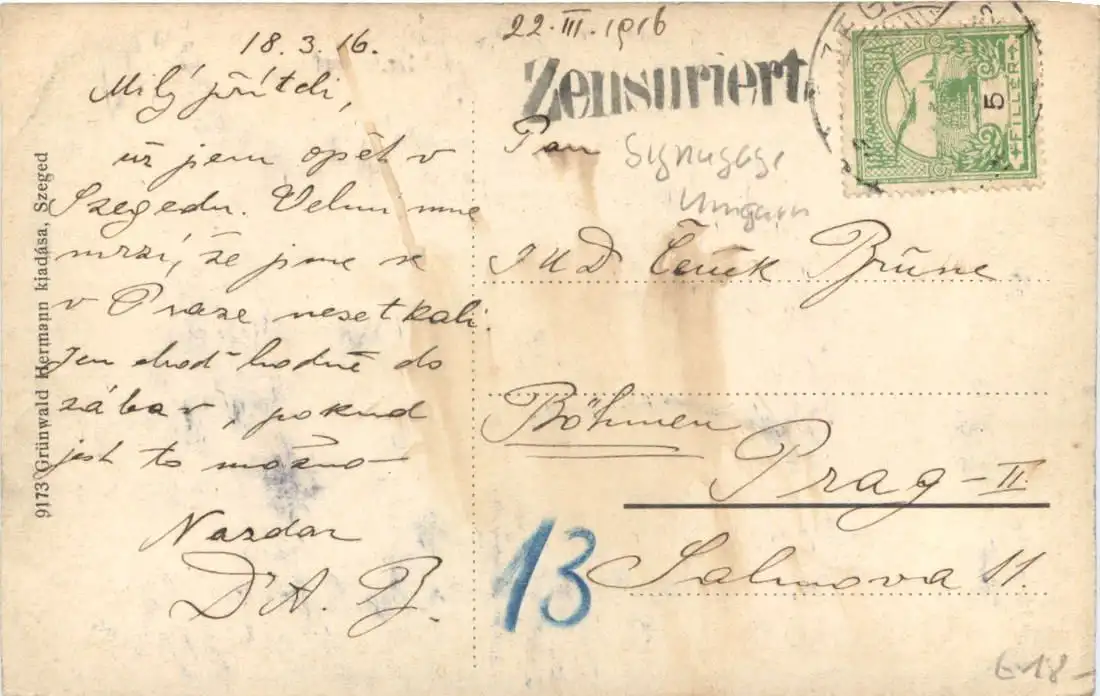 22.III.1916
18.3.16.
Zensuriert
5
FILLÉR
Milý příteli,
už jsem opět v
Szegedu. Velmi mne
mrzí, že jsme se
v Praze nesetkali.
Jen choď hodně do
zábav, pokud
jest to možno
Nazdar
Dr A. B.
Pan
Synagoge
Ungarn
JUD. Čeněk
Böhmen
Prag - II.
Salmova 11.
13
9173 Grünwald Hermann kiadása, Szeged